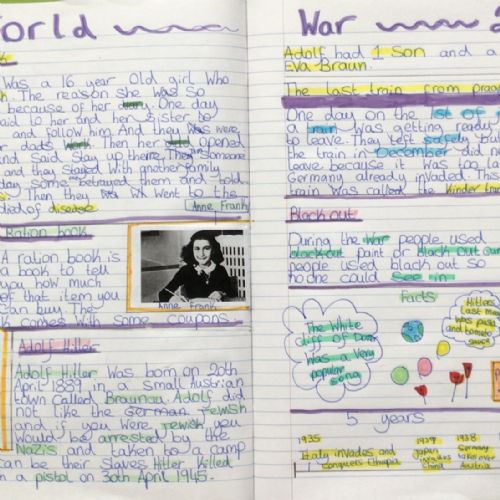 orld
Was a 16 year old girl who
The reason she was so
because of her diary. One day
said to her and her sister to
and follow him And they were
her dads work. Then her opened
and said stay up there. Then someone
and they stayed with another family
day some betrayed them and told
Then they was went to the
died of disease.
Anne Frank
Ration book
A ration book is
a book to tell
you how much
of that item you
can buy. The
comes with some coupons.
Anne Frank
Adolf Hitler
Adolf Hitler was born on 20th
April 1889 in a small Austrian
town called Braunau. Adolf did
not like the German Jewish
and if you were Jewish you
would be arrested by the
Nazis and taken to a camp
can be their slaves Hitler killed
a pistol on 30th April 1945.
War
Adolf had 1 son and a
Eva Braun.
The last train from prag
One day on the 1st of
a train was getting ready
to leave. They left safely but
the train in December did n
leave because it was too la
Germany already invaded. This
train was called the kinder tra
Black out
During the War people used
blackout paint or Black out cur
people used black out so
no one could see in
facts
The White
cliff of Dover
was a very
popular
song
Hitlers
last meal
was pasta
and tomato
sauce
5 years
1935
1937
1938
Italy invades and
Conquers Ethiopia
Japan
invades
China
Germany
takes over
Austria